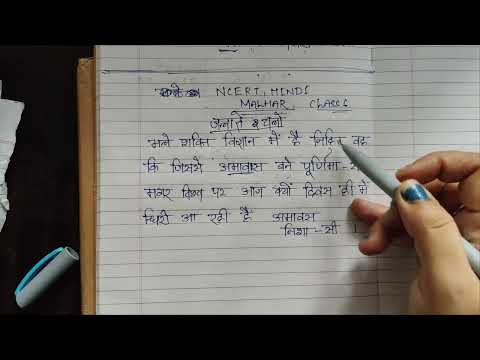 NCERT, HINDI
MALHAR, CLASS 6
जलाते चलो
भले शक्ति विज्ञान में है निहित वह
कि जिससे अमावास बने पूर्णिमा-
मगर विश्व पर आज क्यों दिवस ही में
घिरी आ रही है अमावस
निशा-सी ।